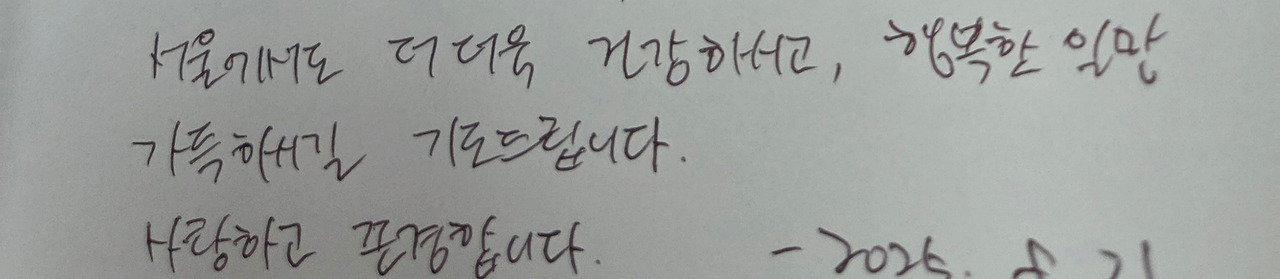 서울에서도 더더욱 건강하시고, 행복한 일만
가득하시길 기도드립니다.
사랑하고 존경합니다. - 2025. 8 21